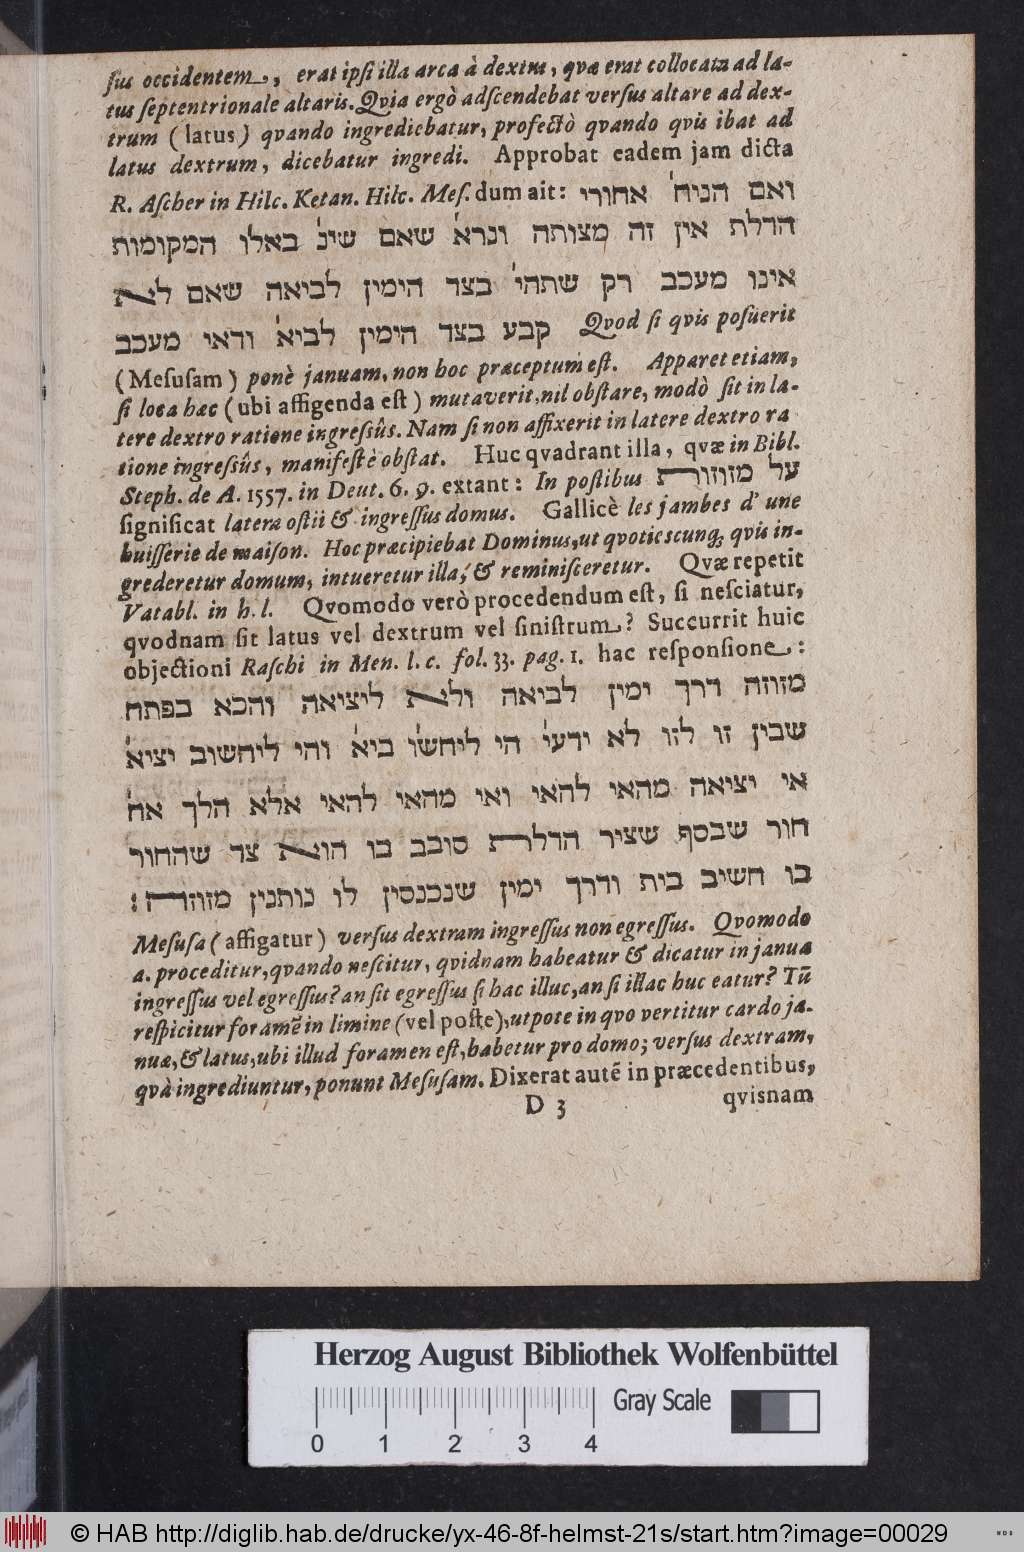 sus occidentem, erat ipsi illa arca à dextra, qvæ erat collocata ad la-
tus septentrionale altaris. Qvia ergò adscendebat versus altare ad dex-
trum (latus) qvando ingrediebatur, profectò qvando qvis ibat ad
latus dextrum, dicebatur ingredi. Approbat eadem jam dicta
R. Ascher in Hilc. Ketan. Hilc. Mes. dum ait: ואם הניח' אחורי
הדלת אין זה מצותה ונרא' שאם שינ' באלו המקומות
אינו מעכב רק שתהי' בצד הימין לביאה שאם לא
קבע בצד הימין לביא' ודאי מעכב Qvod si qvis posuerit
(Mesusam) ponè januam, non hoc præceptum est. Apparet etiam,
si loca hæc (ubi affigenda est) mutaverit, nil obstare, modò sit in la-
tere dextro ratione ingressûs. Nam si non affixerit in latere dextro ra
tione ingressûs, manifestè obstat. Huc qvadrant illa, qvæ in Bibl.
Steph. de A. 1557. in Deut. 6. 9. extant: In postibus על מזוזות
significat latera ostii & ingressus domus. Gallicè les jambes d' une
huisserie de maison. Hoc præcipiebat Dominus, ut qvotiescunq; qvis in-
grederetur domum, intueretur illa, & reminisceretur. Qvæ repetit
Vatabl. in h. l. Qvomodo verò procedendum est, si nesciatur,
qvodnam sit latus vel dextrum vel sinistrum? Succurrit huic
objectioni Raschi in Men. l. c. fol. 33. pag. 1. hac responsione:
מזוזה דרך ימין לביאה ולא ליציאה והכא בפתח
שבין זו לזו לא ידעי' הי ליחשו' ביא' והי ליחשוב יציא'
אי יציאה מהאי להאי ואי מהאי להאי אלא הלך אח'
חור שבסף שציר הדלת סובב בו הוא צד שהחור
בו חשיב בית ודרך ימין שנכנסין לו נותנין מזוזה:
Mesusa (affigatur) versus dextram ingressus non egressus. Qvomodo
a. proceditur, qvando nescitur, qvidnam habeatur & dicatur in janua
ingressus vel egressus? an sit egressus si hac illuc, an si illac huc eatur? Tũ
respicitur foramẽ in limine (vel poste), utpote in qvo vertitur cardo ja-
nuæ, & latus, ubi illud foramen est, habetur pro domo; versus dextram,
qvà ingrediuntur, ponunt Mesusam. Dixerat autẽ in præcedentibus,
D 3 qvisnam
Herzog August Bibliothek Wolfenbüttel
Gray Scale
0 1 2 3 4
© HAB http://diglib.hab.de/drucke/yx-46-8f-helmst-21s/start.htm?image=00029